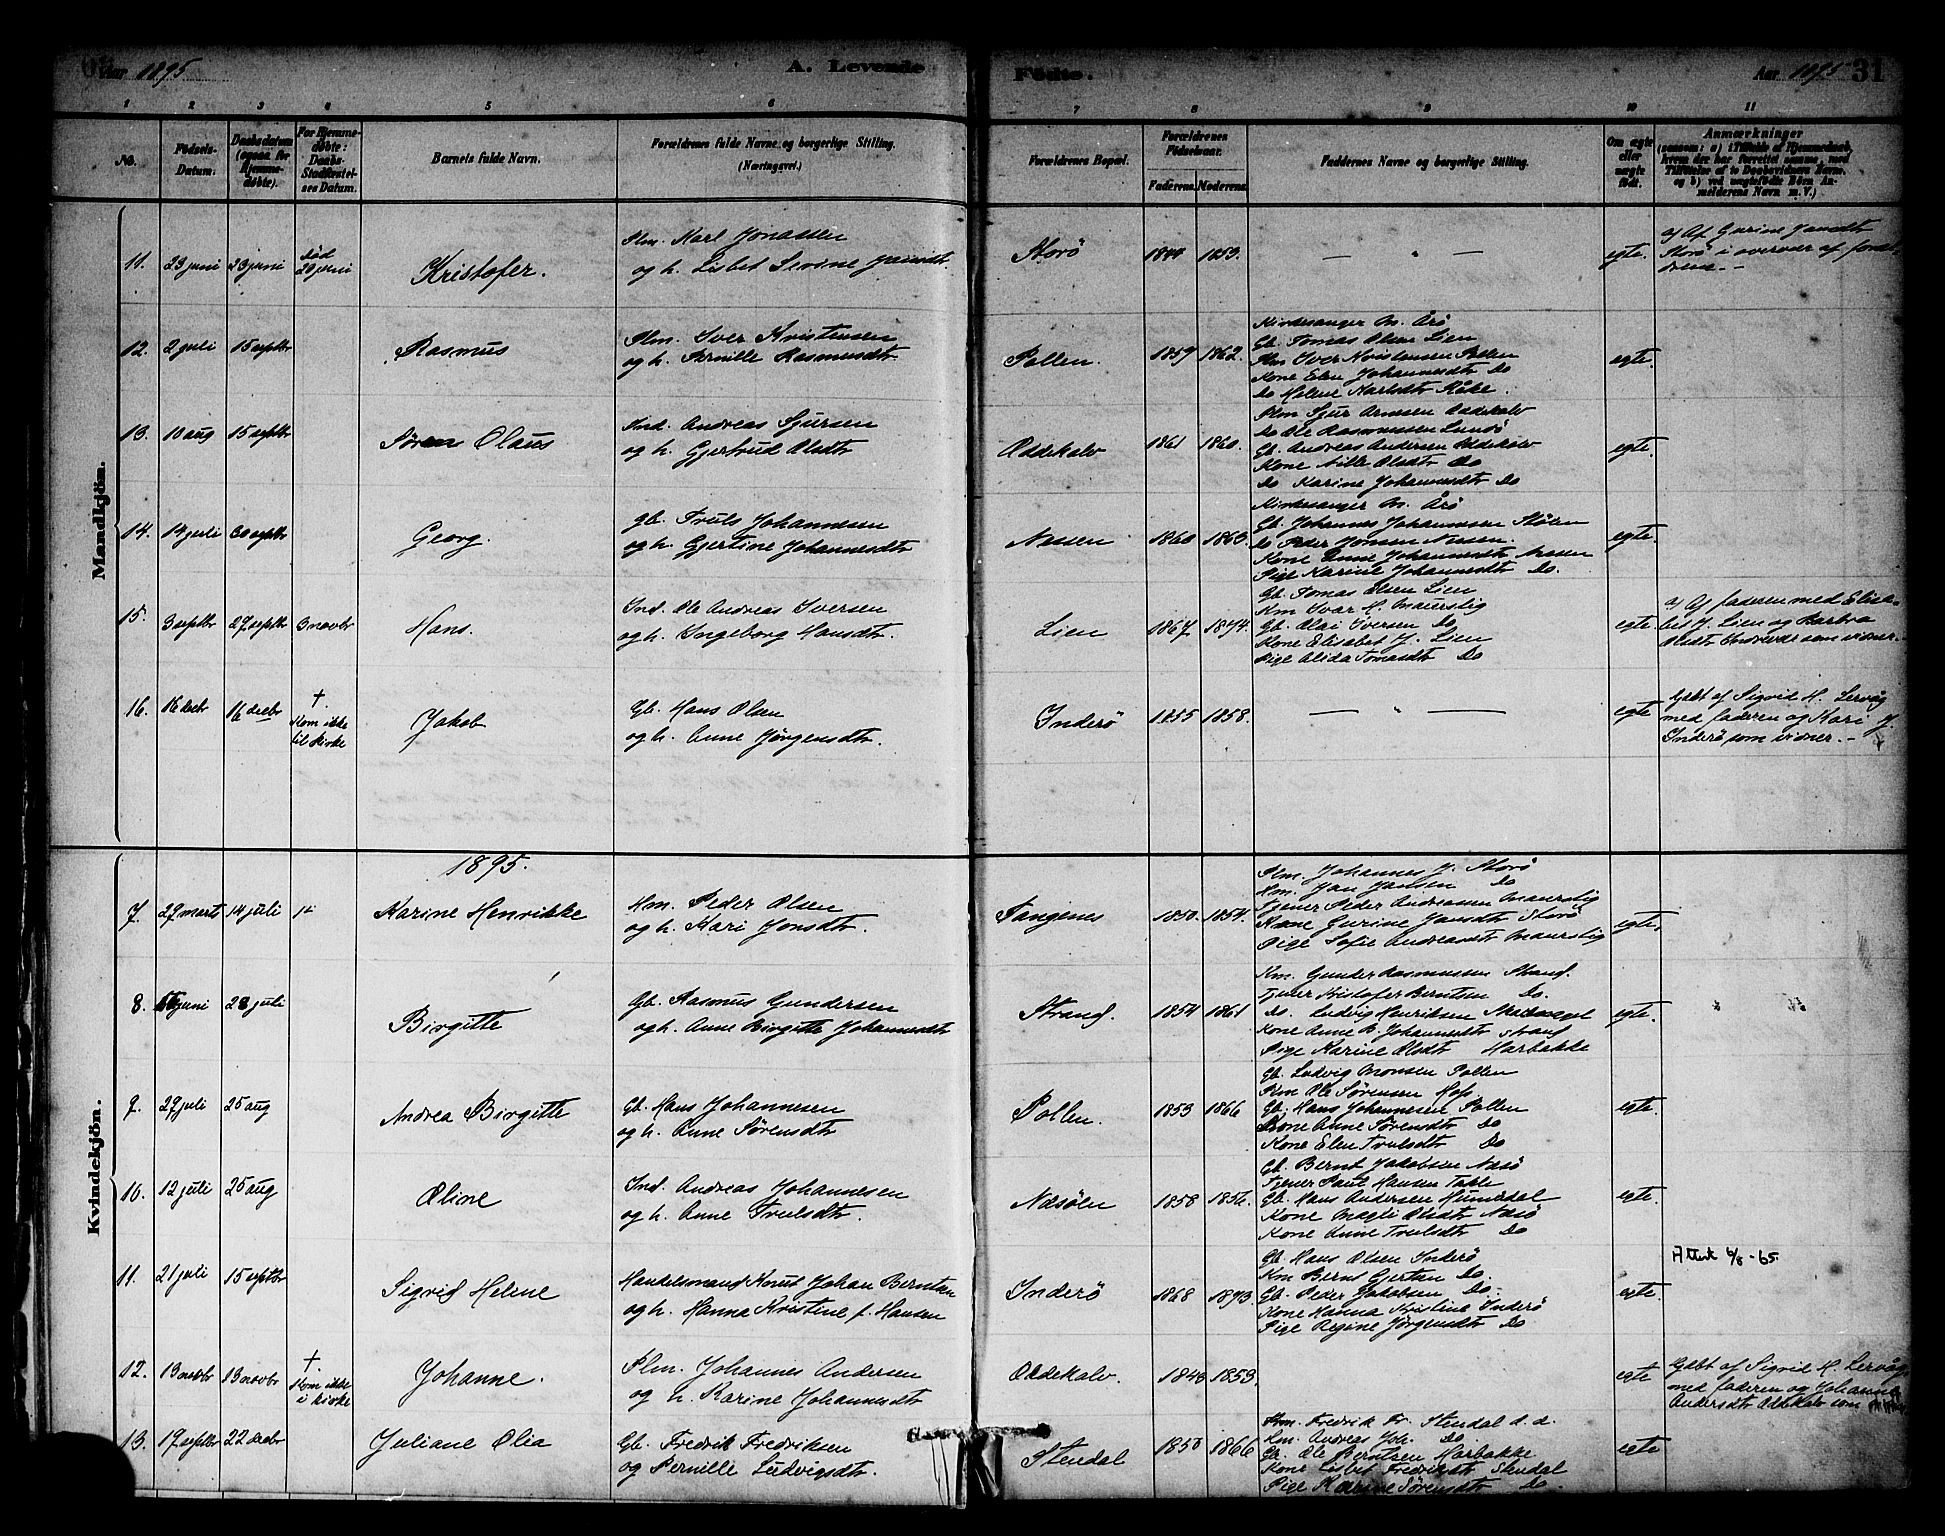 Aar 1895
A. Levende
Fødte.
Aar 1895
31
1 2 3 4 5 6 7 8 9 10 11
No.
Fødsels-Datum.
Daabsdatum (ogsaa for Hjemmedøbte).
For Hjemmedøbte: Daabs-Stadfæstelses Datum.
Barnets fulde Navn.
Forældrenes fulde Navne og borgerlige Stilling. (Næringsvei.)
Forældrenes Bopæl.
Forældrenes Fødselsaar.
Faderens. Moderens.
Faddernes Navne og borgerlige Stilling.
Om ægte eller uægte født.
Anmærkninger
Mandkjøn.
11. 23 juni 23 juni død 29 juni Kristofer. Plm. Karl Jonassen
og h. Lisbet Sevine
Storö 1853. — " — egte.
a) Af Gurine Jansdt
Storö i overvær af
12. 2 juli 15 septbr Rasmus Plm. Iver Kristensen
og h. Pernille Rasmusdtr.
Pollen. 1859 1862. egte.
Kirkesanger M. Årö
Gb. Tomas Olsen Lien
Plm Iver Kristensen Pollen
Kone Elen Johannesdtr Do
Do Helene Karlsdtr
13. 10 aug 15 septbr Sören Olaus Ind. Andreas Sjursen
og h. Gjertrud Olsdtr
Oddekalv 1861 1860. egte.
Plm Sjur Arnesen Oddekalv
Do Ole Rasmussen Lundö
Gb. Andreas Andersen Oddekalv
Kone Nille Olsdtr Do
Do Karine Johannesdtr Do
14. 14 juli 30 septbr Georg. Gb. Truls Johannesen
og h. Gjertine Johannesdtr
Nessen 1860 1863. egte.
Kirkesanger M. Årö
Gb. Johannes Johannessen Stölen
Do Peder Jonsen Nessen.
Kone Anne Johannesdtr Nessen
Pige Karine Johannesdtr Do.
15. 3 septbr 27 septbr 3 novbr Hans. Ind. Ole Andreas Iversen
og h. Ingeborg Hansdtr.
Lien 1867 1874. egte.
Gb. Tomas Olsen Lien
Km Ivar H. Maurslig
Gb. Olai Iversen Do
Kone Elisabet J. Lien
Pige Alida Tomasdtr Do
a) Af faderen med Elisa-
bet J. Lien og Barbra
Olsdtr Inderöen som vidner. -
16. 16 decbr 16 decbr † . Kom ikke til kirke Jakob Gb. Hans Olsen
og h. Anne Jörgensdtr.
Inderö 1855 1858. — " — egte
Döbt af Sigrid H. Lervåg
med faderen og Kari J.
Inderö som vidner. -
Kvindekjøn.
1895.
7. 29 marts 14 juli Karine Henrikke Hm. Peder Olsen
og h. Kari Jonsdtr.
Tangenes 1850. 1854. egte.
Plm. Johannes J. Storö
Hm. Jan Jansen Do
Tjener Peder Andreasen Maurslig
Kone Gurine Jansdtr Storö
Pige Sofie Andreasdtr Maurslig
8. juni 28 juli Birgitte Gb. Rasmus Gundersen
og h. Anne Birgitte Johannesdtr
Strand. 1854 1861 egte.
Km. Gunder Rasmussen Strand.
Tjener Kristofer Berntsen Do.
Do. Ludvig Henriksen
Kone Anne B. Johannesdtr Strand
Pige Karine Olsdtr Harbakke
9. 29 juli 25 aug Andrea Birgitte Gb. Hans Johannesen
og h. Anne Sörensdtr
Pollen. 1853 1866 egte.
Gb. Ludvig Monsen Pollen
Km Ole Sörensen Hop
Gb. Hans Johannesen Pollen
Kone Anne Sörensdtr Do
Kone Elen Trulsdtr Do
10. 12 juli 25 aug Oline Ind. Andreas Johannesen
og h. Anne Trulsdtr.
Nesöen 1858 1856. egte.
Gb. Bernt Jakobsen Nesö
Tjener Paul Hansen Takle
Gb. Hans Andersen Humedal
Kone Magli Olsdtr Nesö
Kone Anne Trulsdtr Do
11. 21 juli 15 septbr Sigrid Helene Handelsmand Knut Johan Berntsen
og h. Hanna Kristine f. Hansen
Inderö 1868 1873. egte.
Gb. Hans Olsen Inderö
Km Bernt Gjertsen Do.
Gb. Peder Jakobsen Do.
Kone Hanna Kristine Inderö
Pige Regine Jörgensdtr Do
Attest 6/8-65.
12. 13 novbr 13 novbr † . Kom ikke i kirke Johanne. Plm. Johannes Andersen
og h. Karine Johannesdtr
Oddekalv. 1853. egte
Döbt af Sigrid H. Lervåg
med faderen og Johanne
Andersdtr Oddekalv som
13. 17 septbr 22 decbr Juliane Olea Gb. Fredrik Fredriksen
og Pernille Ludvigsdtr.
Stendal 1850 1866 egte
Km. Fredrik Fr. Stendal d. æ.
Km. Andreas Joh. Do.
Gb. Ole Berntsen Harbakke
Kone Lisbet Fredriksdtr Stendal
Pige Karine Sörensdtr Do.